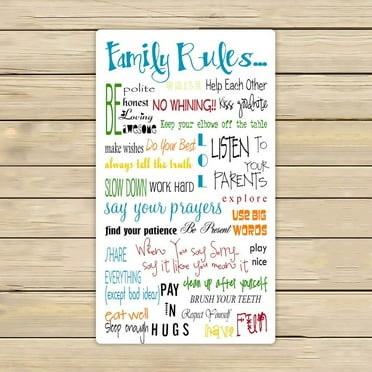 Family Rules...
BE polite
honest
Loving
awesome
Help Each Other
NO WHINING!!
Kiss goodnite
Keep your elbows off the table
make wishes
Do Your Best
LOL
LISTEN TO
YOUR
PARENTS
always tell the truth
SLOW DOWN
work hard
explore
say your prayers
USE BIG
WORDS
find your patience
Be Present
SHARE
EVERYTHING
(except bad ideas)
When You say Sorry,
say it like you mean it
play
nice
clean up after yourself
PAY
IN
HUGS
BRUSH YOUR TEETH
eat well
Sleep enough
Respect Yourself
have FUN